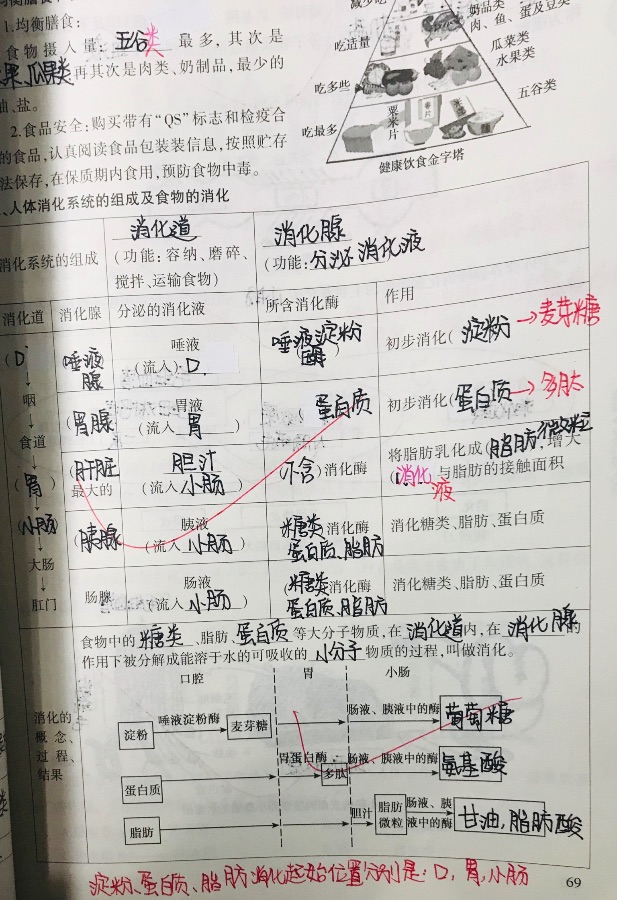 1.均衡膳食:
食物摄入量:五谷类 最多,其次是
果 瓜果类 再其次是肉类、奶制品,最少的
油、盐。
2.食品安全:购买带有“QS”标志和检疫合
的食品,认真阅读食品包装装信息,按照贮存
法保存,在保质期内食用,预防食物中毒。
减少吃
吃适量
吃多些
吃最多
奶品类
肉、鱼、蛋及豆类
瓜菜类
水果类
五谷类
粟米片
健康饮食金字塔
人体消化系统的组成及食物的消化
消化系统的组成
消化道
(功能:容纳、磨碎、
搅拌、运输食物)
消化腺
(功能:分泌消化液
消化道 消化腺 分泌的消化液 所含消化酶 作用
(口
咽
食道
(胃)
(小肠)
大肠
肛门
唾液腺
唾液
(流入)口
唾液淀粉
(酶)
初步消化(淀粉→麦芽糖
(胃腺
胃液
(流入 胃 )
(蛋白质
初步消化(蛋白质→多肽
(肝脏
最大的
胆汁
(流入 小肠 )
(不含)消化酶
将脂肪乳化成(脂肪微粒,增大
(消化液 与脂肪的接触面积
(胰腺
胰液
(流入 小肠 )
糖类 消化酶
蛋白质、脂肪
消化糖类、脂肪、蛋白质
肠腺
肠液
(流入 小肠 )
(糖类 消化酶
蛋白质、脂肪
消化糖类、脂肪、蛋白质
消化的
概念、
过程、
结果
食物中的 糖类 、脂肪、蛋白质 等大分子物质,在 消化道 内,在 消化腺 的
作用下被分解成能溶于水的可吸收的 小分子 物质的过程,叫做消化。
口腔 胃 小肠
淀粉 唾液淀粉酶 麦芽糖 肠液、胰液中的酶 葡萄糖
蛋白质 胃蛋白酶 多肽 肠液、胰液中的酶 氨基酸
脂肪 胆汁 脂肪微粒 肠液、胰液中的酶 甘油,脂肪酸
淀粉、蛋白质、脂肪消化起始位置分别是:口,胃,小肠
69